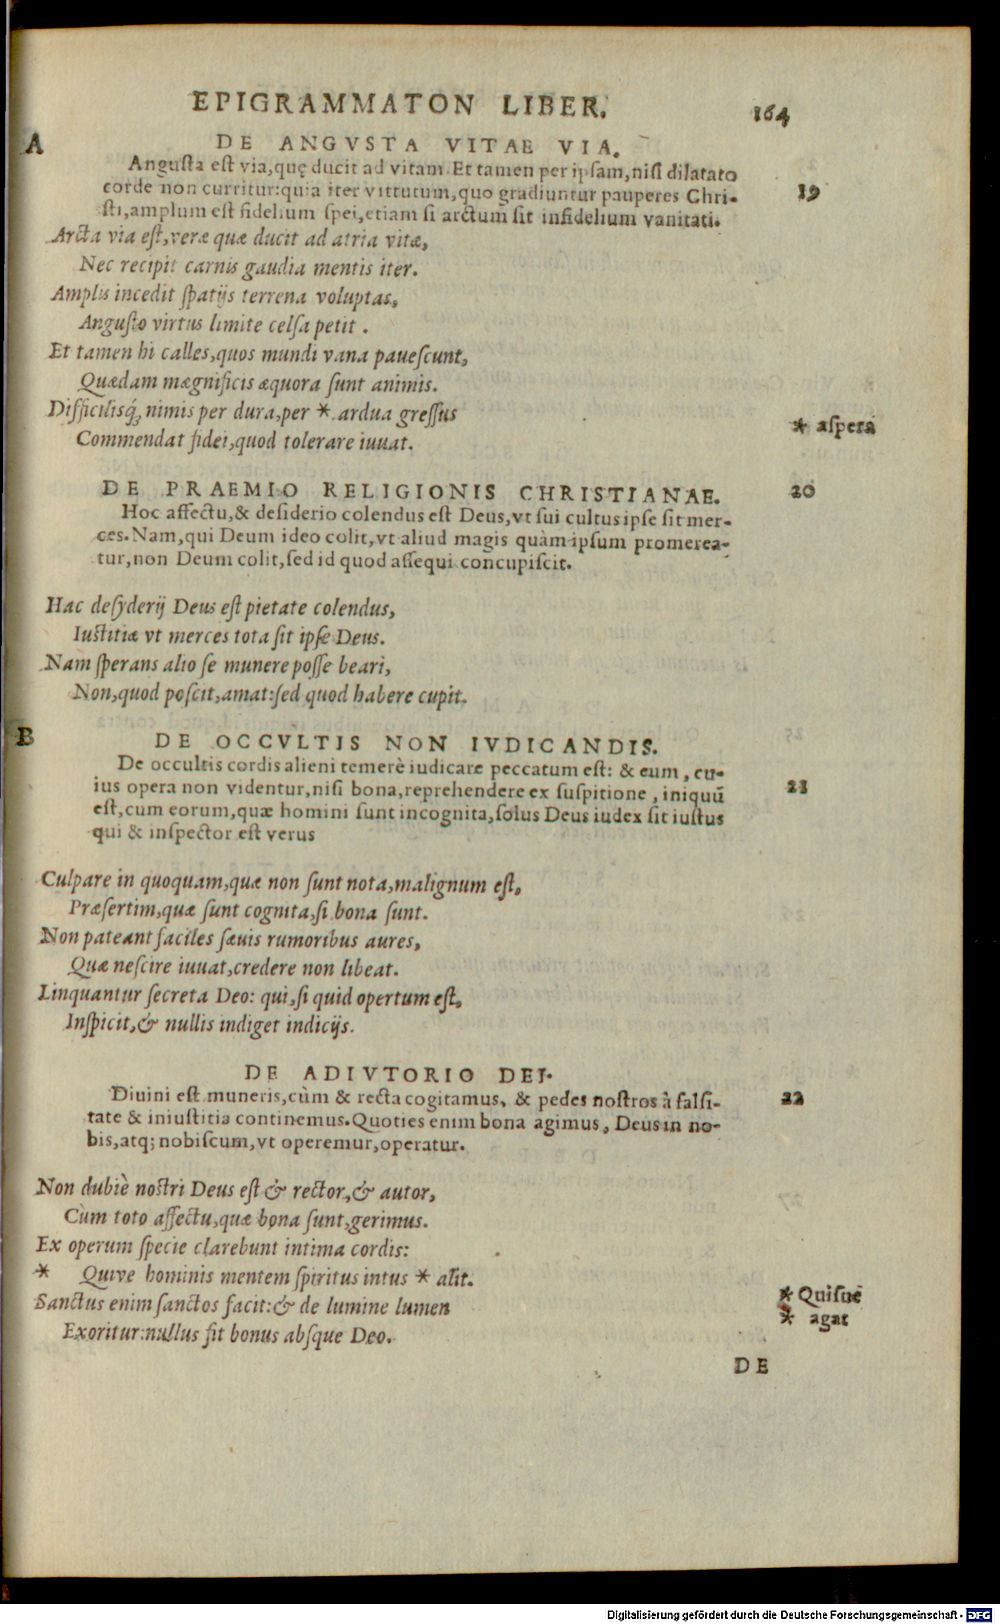 EPIGRAMMATON LIBER. 164
A DE ANGVSTA VITAE VIA.
Angusta est via,quę ducit ad vitam.Et tamen per ipsam,nisi dilatato
corde non curritur:quia iter virtutum,quo gradiuntur pauperes Chri- 19
sti,amplum est fidelium spei,etiam si arctum sit infidelium vanitati.
Arcta via est,veræ quæ ducit ad atria vitæ,
Nec recipit carnis gaudia mentis iter.
Amplis incedit spatijs terrena voluptas,
Angusto virtus limite celsa petit.
Et tamen hi calles,quos mundi vana pauescunt,
Quædam mægnificis æquora sunt animis.
Difficilisq́; nimis per dura,per * ardua gressus * aspera
Commendat fidei,quod tolerare iuuat.
DE PRAEMIO RELIGIONIS CHRISTIANAE. 20
Hoc affectu,& desiderio colendus est Deus,vt sui cultus ipse sit mer-
ces.Nam,qui Deum ideo colit,vt aliud magis quàm ipsum promerea-
tur,non Deum colit,sed id quod assequi concupiscit.
Hac desyderij Deus est pietate colendus,
Iustitiæ vt merces tota sit ipse Deus.
Nam sperans alio se munere posse beari,
Non,quod poscit,amat:sed quod habere cupit.
B DE OCCVLTIS NON IVDICANDIS.
De occultis cordis alieni temerè iudicare peccatum est: & eum, cu-
ius opera non videntur,nisi bona,reprehendere ex suspitione, iniquū 21
est,cum eorum,quæ homini sunt incognita,solus Deus iudex sit iustus
qui & inspector est verus
Culpare in quoquam,quæ non sunt nota,malignum est,
Præsertim,quæ sunt cognita,si bona sunt.
Non pateant faciles sæuis rumoribus aures,
Quæ nescire iuuat,credere non libeat.
Linquantur secreta Deo: qui,si quid opertum est,
Inspicit,& nullis indiget indicijs.
DE ADIVTORIO DEI.
Diuini est muneris,cùm & recta cogitamus, & pedes nostros à falsi- 22
tate & iniustitia continemus.Quoties enim bona agimus, Deus in no-
bis,atq; nobiscum,vt operemur,operatur.
Non dubiè nostri Deus est & rector,& autor,
Cùm toto affectu,quæ bona sunt,gerimus.
Ex operum specie clarebunt intima cordis:
* Quive hominis mentem spiritus intus * alit.
* Quisue
Sanctus enim sanctos facit:& de lumine lumen
* agat
Exoritur:nullus fit bonus absque Deo.
DE
Digitalisierung gefördert durch die Deutsche Forschungsgemeinschaft - DFG